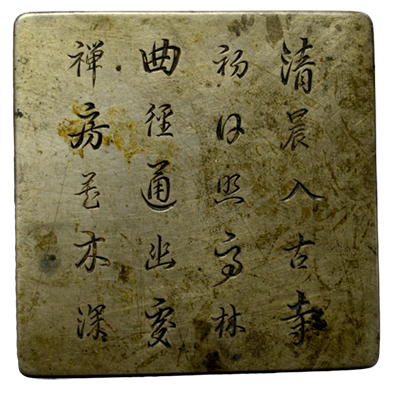 清晨入古寺
初日照高林
曲徑通幽處
禅房花木深